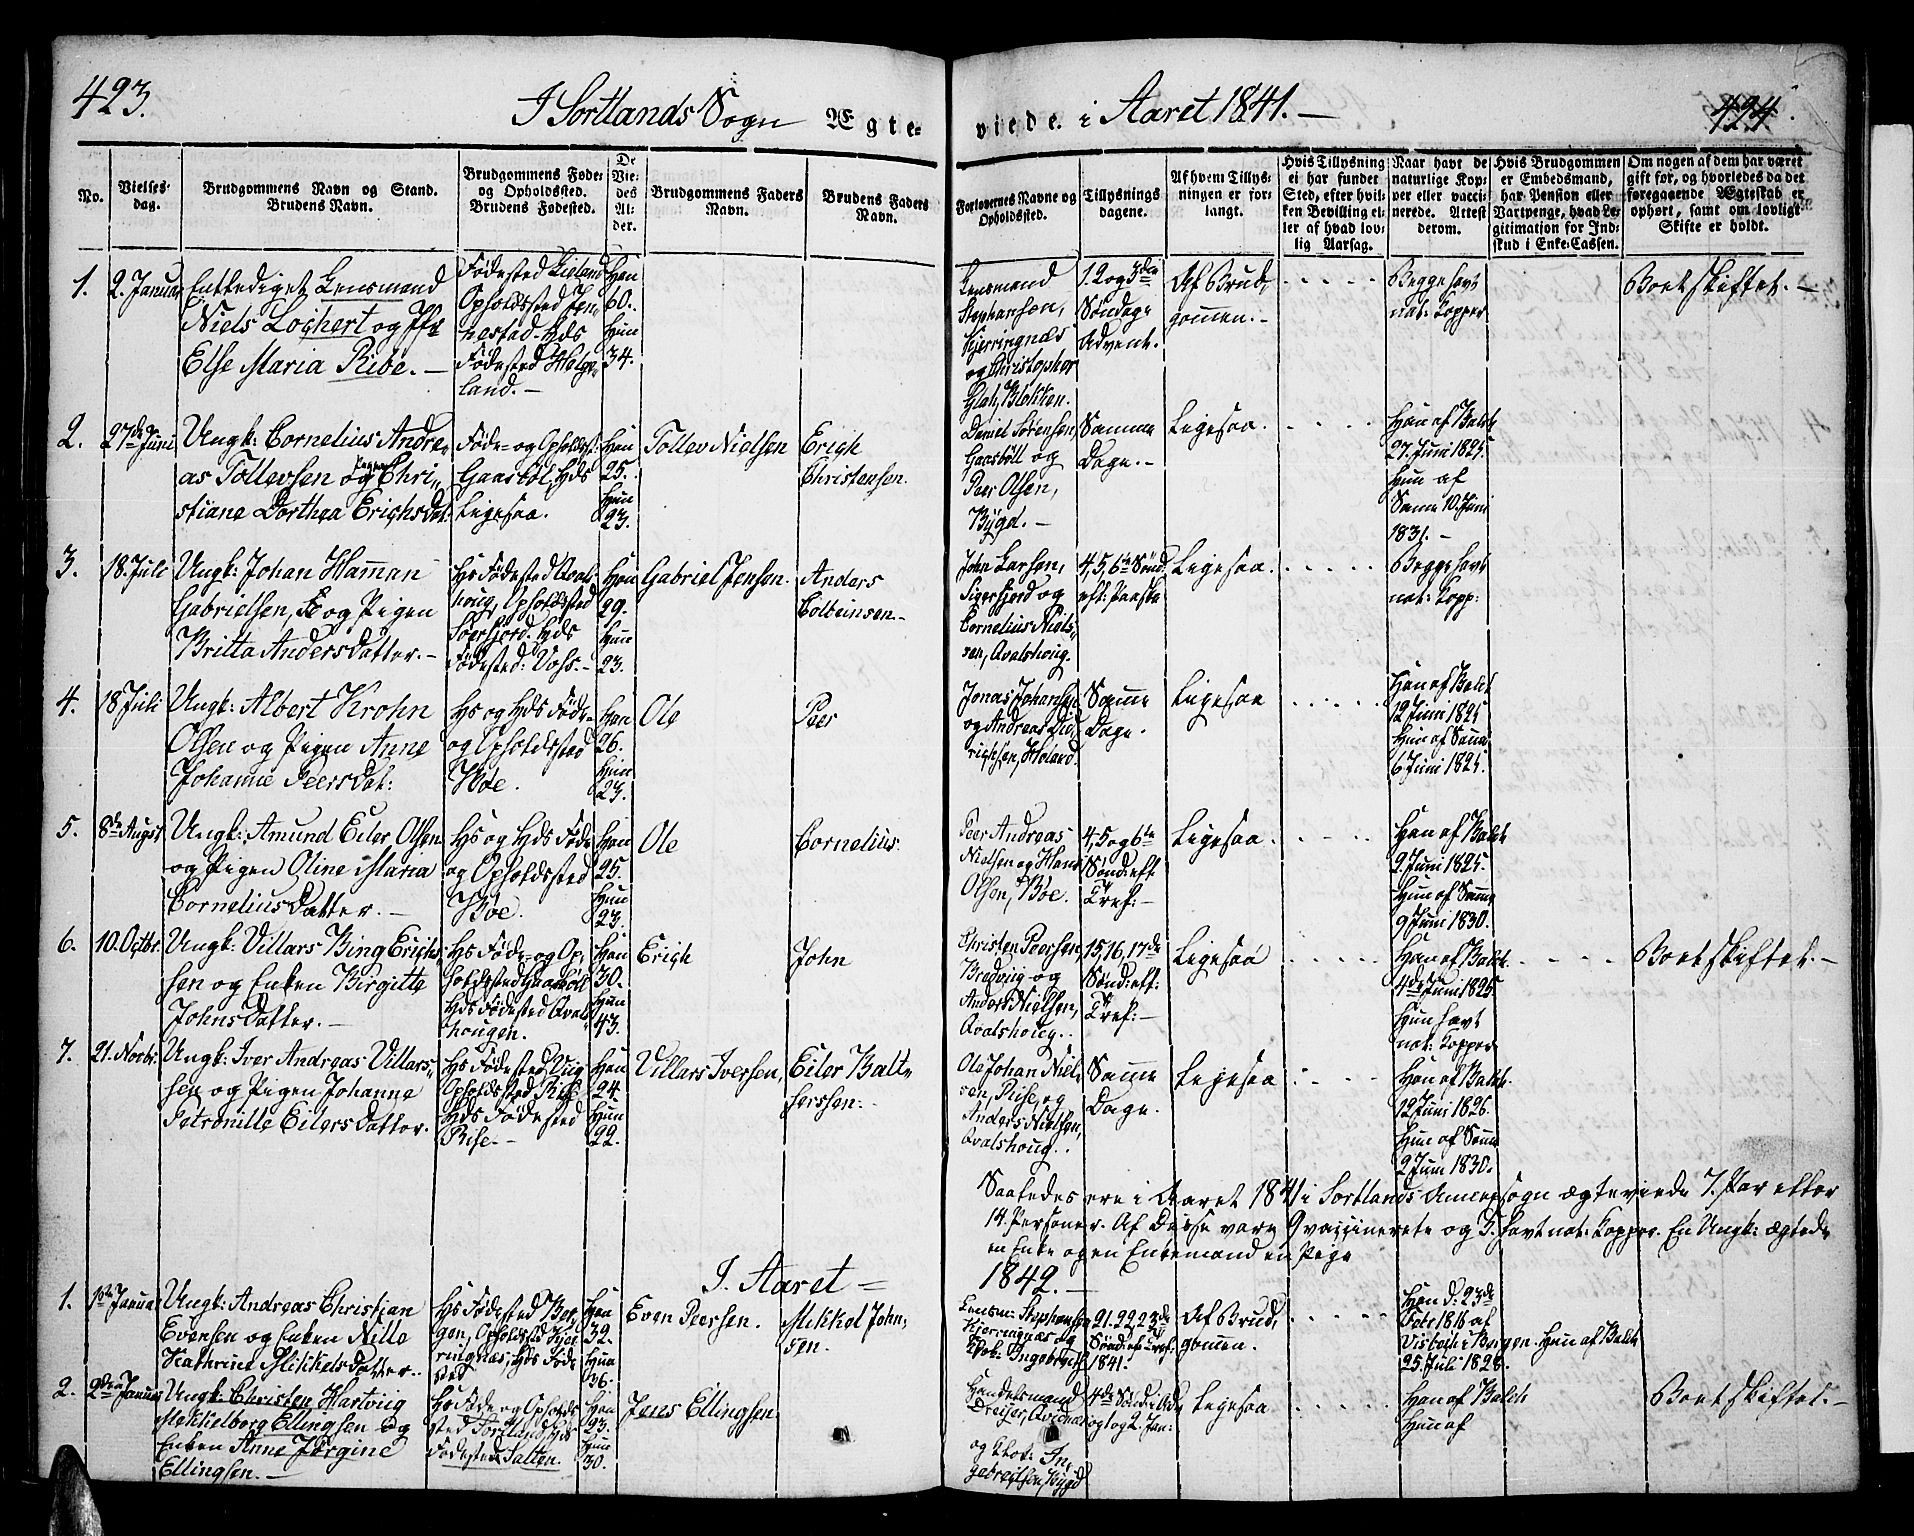 423.
I Sortlands Sogn Ægte-
viede i Aaret 1841.
424.
No.
Vielses-
dag.
Brudgommens Navn og Stand.
Brudens Navn.
Brudgommens Føde-
og Opholdssted.
Brudens Fødested.
De
Vie-
des
Al-
der.
Brudgommens Faders
Navn.
Brudens Faders
Navn.
Forlovernes Navne og
Opholdssted.
Tillysnings
dagene.
Af hvem Tillys-
ningen er for-
langt.
Hvis Tillysning
ei har fundet
Sted, efter hvil-
ken Bevilling el-
ler af hvad lov-
lig Aarsag.
Naar havt de
naturlige Kop-
per eller vacci-
nerede. Attest
derom.
Hvis Brudgommen
er Embedsmand,
har Pension eller
Vartpenge, hvad Le-
gitimation for Ind-
skud i Enke-Cassen.
Om nogen af dem har været
gift før, og hvorledes da det
foregaaende Ægteskab er
ophørt, samt om lovligt
Skifte er holdt.
1.
2. Januar
Entlediget Lensmand
Niels Lochert og Jfr
Else Maria Ribe. —
Opholdssted Jen-
nestad. Hds
Fødested Helge-
land. —
Han
60.
Hun
34.
Lensmand
Stephansen,
Kjerringnæs
og Christopher
1. 2 og 3de
Søndag
Advent.
Af Brud-
gommen. —
Begge havt
nat: Kopper
Boet skiftet. —
2.
27de Juni
Ungk: Cornelius Andre-
as Tollevsen og Pigen Chri-
stiane Dorthea Erichsdat:
Føde- og Opholdsst:
Gaasbøl, Hds
Ligesaa.
Han
25.
Hun
23.
Tollev Nielsen
Erich
Christensen.
Daniel Sørensen,
Gaasbøll og
Peer Olsen,
Bygd. —
Samme
Dage. —
Ligesaa.
Han af Balch
27. Juni 1825
Hun af
Samme 10. Juni
1831. —
3.
18. Juli
Ungk: Johan Haman
Gabrielsen, og Pigen
Britta Andersdatter. —
Hs Fødested Qval-
houg, Opholdssted
Hds
Fødested: Voss. —
Han
29.
Hun
23.
Gabriel Jensen.
Anders
Colbeinsen. —
John Larsen,
Sigerfjord og
Cornelius Niel-
sen, Qvalshoug.
4, 5, 6te Sønd:
eft: Paaske
Ligesaa.
Begge havt
nat: Kopp:
4.
18 Juli
Ungk: Albert Krohn
Olsen og Pigen Anne
Johanne Peersdat:
Hs og Hds Føde-
og Opholdssted
Bøe.
Han
26.
Hun
23.
Ole
Peer
Jonas Johansen
og Andreas Did-
richsen, Holand.
Samme
Dage.
Ligesaa
Han af Balch
12 Juni 1825
Hun af Samme
6 Juni 1825.
5.
8de Augst.
Ungk: Amund Eiler Olsen
og Pigen Oline Maria
Corneliusdatter. —
Hs og Hds Føde-
og Opholdssted
Bøe.
Han
25.
Hun
23.
Ole
Cornelius.
Peer Andreas
Nielsen og Hans
Olsen, Bøe.
4, 5 og 6te
Sønd: eft:
Tref: —
Ligesaa.
Han af Balch
2. Juni 1825.
Hun af Samme
9 Juni 1830.
6.
10. Octbr.
Ungk: Villars Bing Erich-
sen og Enken Birgitte
Johnsdatter. —
Hs Føde- og Op-
holdssted Gaasbøll
Hds Fødested Qval-
hougen.
Han
30.
Hun
43.
Erich
John
Christen Peersen,
Bredvig og
Anders Nielsen,
Qvalshoug.
15, 16, 17de
Sønd: eft:
Tref: —
Ligesaa
Han af Balch
4de Juni 1825.
Hun havt
nat: Kopper
Boet skiftet. —
7.
21. Novbr.
Ungk: Iver Andreas Villar-
sen og Pigen Johanne
Petronille Eilersdatter.
Hs Fødested Vig
Opholdssted Rise
Hds Fødested
Rise. —
Han
24.
Hun
22.
Villars Iversen,
Eiler Balt-
sersen.
Ole Johan Niel-
sen, Rise, og
Anders Nielsen,
Qvalshoug.
Samme
Dage.
Ligesaa
Han af Balch
12 Juni 1826.
Hun af Samme
2 Juni 1830.
Saaledes ere i Aaret 1841 i Sortlands Annexsogn ægteviede 7. Par eller
14. Personer. Af Disse vare 9 vaccinerede og 5. havt nat: Kopper. En Ungk: ægtede
en Enke og en Enkemand en Pige
I Aaret —
1842. —
1.
1ste Januar
Ungk: Andreas Christian
Evensen og Enken Nille
Kathrine Mikkelsdatter.
Hs Fødested Ber-
gen, Opholdssted Kjer-
ringnæs, Hds Føde-
sted
Han
32.
Hun
36.
Even Peersen.
Mikkel John-
sen.
Lensm: Stephansen
Kjerringnæs og
21. 22. 23de
Sønd: eft: Tref:
1841.
Af Brud-
gommen.
Han d: 23de
Febr 1816 af
Visbech i Bergen. Hun af Balch
25 Juli 1828.
2.
2den Januar
Ungk: Christen Hartvig
Mekkelborg Ellingsen og
Enken Anne Jørgine
Ellingsen. —
Hs Føde og Opholds-
sted Sortland, Hds
Fødested Salten.
Han
23.
Hun
30.
Jens Ellingsen
Handelsmand
Dreyer,
og Kbok: In-
gebrigtsen, Bygd
4de Sønd: i Adv:
og 1 og 2. Jan:
Ligesaa
Han af Balch
Hun af
Boet skiftet. —